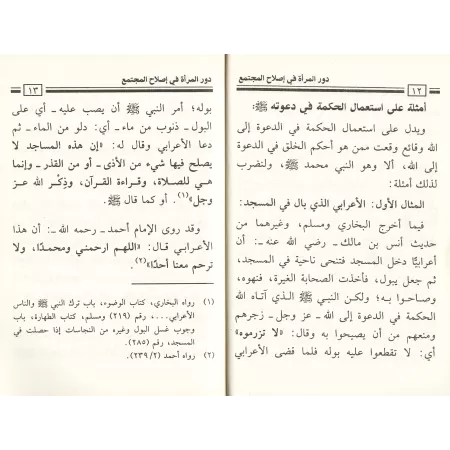 دور المرأة في إصلاح المجتمع
١٢
أمثلة على استعمال الحكمة في دعوته ﷺ:
ويدل على استعمال الحكمة في الدعوة إلى
الله وقائع وقعت ممن هو أحكم الخلق في الدعوة
إلى الله، ألا وهو النبي محمد ﷺ، ولنضرب
لذلك أمثلة:
المثال الأول: الأعرابي الذي بال في المسجد:
فيما أخرج البخاري ومسلم، وغيرهما من
حديث أنس بن مالك ـ رضي الله عنه ـ: أن
أعرابيًّا دخل المسجد فتنحى ناحية في المسجد،
ثم جعل يبول، فأخذت الصحابة الغيرة، فنهوه،
وصاحوا به؛ ولكن النبي ﷺ الذي آتاه الله
الحكمة في الدعوة إلى الله ـ عز وجل ـ زجرهم
ومنعهم من أن يصيحوا به وقال: «لا تزرموه»
أي: لا تقطعوا عليه بوله فلما قضى الأعرابي
دور المرأة في إصلاح المجتمع
١٣
بوله؛ أمر النبي ﷺ أن يصب عليه ـ أي على
البول ـ ذنوب من ماء ـ أي: دلو من الماء ـ ثم
دعا الأعرابي وقال له: «إن هذه المساجد لا
يصلح فيها شيء من الأذى ـ أو من القذر ـ وإنما
هي للصلاة، وقراءة القرآن، وذكْر الله عز
وجل»(١). أو كما قال ﷺ.
وقد روى الإمام أحمد ـ رحمه الله ـ: أن هذا
الأعرابي قال: «اللهم ارحمني ومحمدًا، ولا
ترحم معنا أحدًا»(٢).
(١) رواه البخاري، كتاب الوضوء، باب ترك النبي ﷺ والناس
الأعرابي.... رقم (٢١٩) ومسلم، كتاب الطهارة، باب
وجوب غسل البول وغيره من النجاسات إذا حصلت في
المسجد، رقم (٢٨٥).
(٢) رواه أحمد (٢/ ٢٣٩).